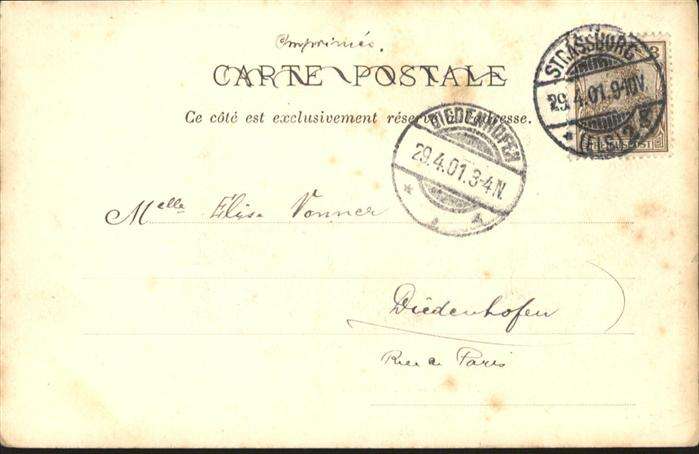 Imprimés.
CARTE POSTALE
Ce côté est exclusivement réservé à l'adresse.
STRASSBURG
29.4.01.9-10V.
(ELS) 2
DIEDENHOFEN
29.4.01.3-4N.
Melle Élise Vonner
Diedenhofen
Rue a Paris